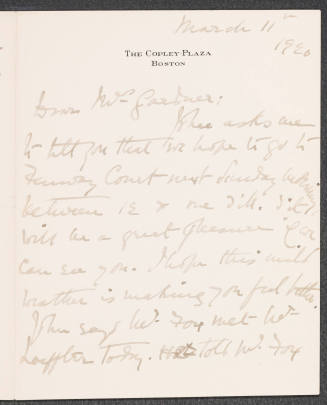 March 11th
1920
THE COPLEY-PLAZA
BOSTON
Dear Mrs Gardner:
John asks me
to tell you that we hope to go to
Fenway Court next Sunday
between 12 & one
will be a great pleasure if we
can see you. I hope this mild
weather is making you feel better.
John says Mr. Fox met Mr.
Loeffler today. told Mr. Fox